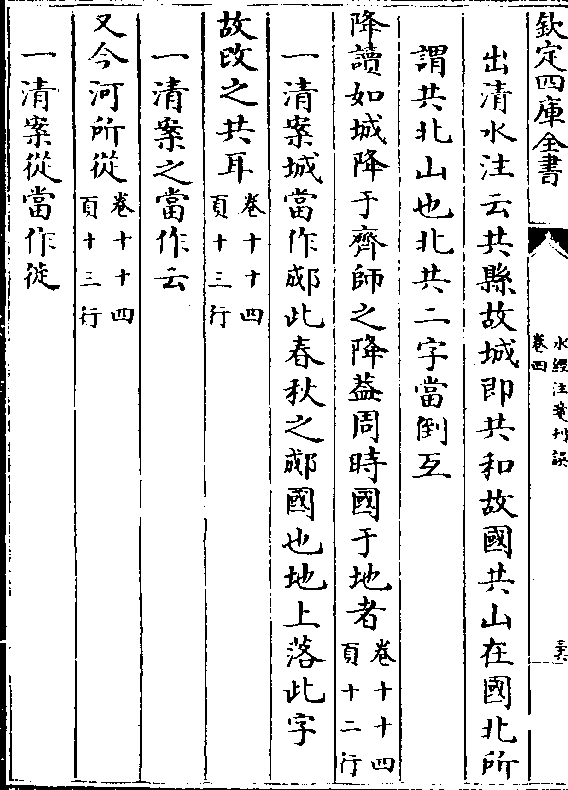 欽定四庫全書
水經注箋刊誤
卷四
出清水注云共縣故城即共和故國共山在國北所
謂共北山也北共二字當倒互
降讀如城降于齊師之降葢周時國于地者卷十十四頁十二行
一清案城當作郕此春秋之郕國也地上落此字
故改之共耳卷十十四頁十三行
一清案之當作云
又今河所從卷十十四頁十三行
一清案從當作徙